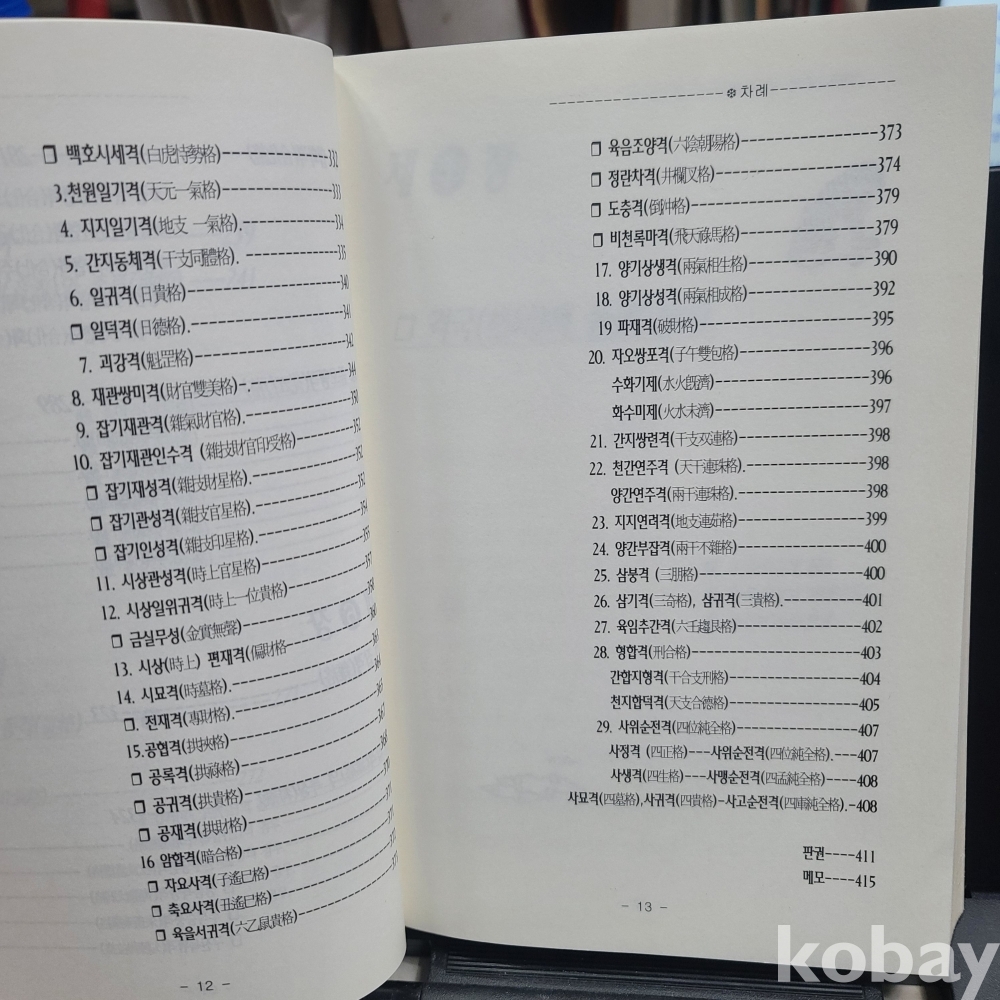 ❒ 백호시세격(白虎恃勢格)-----332
3.천원일기격(天元一氣格)-----333
4. 지지일기격(地支 一氣格).-----334
5. 간지동체격(干支同體格).-----335
6. 일귀격(日貴格)-----340
❒ 일덕격(日德格).-----341
7. 괴강격(魁罡格)-----342
8. 재관쌍미격(財官雙美格).-----344
9. 잡기재관격(雜氣財官格).-----350
10. 잡기재관인수격 (雜技財官印受格)-----351
❒ 잡기재성격(雜技財星格)-----352
❒ 잡기관성격(雜技官星格)-----353
❒ 잡기인성격(雜技印星格)-----354
11. 시상관성격(時上官星格)-----355
12. 시상일위귀격(時上一位貴格)-----357
❒ 금실무성(金實無聲)-----358
13. 시상(時上) 편재격(偏財格-----360
14. 시묘격(時墓格).-----361
❒. 전재격(專財格)-----364
15.공협격(拱挾格)-----365
❒ 공록격(拱祿格)-----367
❒ 공귀격(拱貴格)-----368
❒ 공재격(拱財格)-----370
16 암합격(暗合格)-----371
❒ 자요사격(子遙巳格)-----371
❒ 축요사격(丑遙巳格)-----372
❒ 육을서귀격(六乙鼠貴格)-----373
- 12 -
❆차례
❒ 육음조양격(六陰朝陽格)-----373
❒ 정란차격(井欄叉格)-----374
❒ 도충격(倒沖格)-----379
❒ 비천록마격(飛天祿馬格)-----379
17. 양기상생격(兩氣相生格)-----390
18. 양기상성격(兩氣相成格)-----392
19 파재격(破財格)-----395
20. 자오쌍포격(子午雙包格)-----396
수화기제(水火旣濟)-----396
화수미제(火水未濟)-----397
21. 간지쌍련격(干支双連格)-----398
22. 천간연주격 (天干連珠格).-----398
양간연주격(兩干連珠格).-----398
23. 지지연려격(地支連茹格)-----399
24. 양간부잡격(兩干不雜格)-----400
25. 삼붕격 (三朋格)-----400
26. 삼기격(三奇格), 삼귀격(三貴格).-----401
27. 육임추간격(六壬趨艮格)-----402
28. 형합격(刑合格)-----403
간합지형격(干合支刑格)-----404
천지합덕격(天支合德格)-----405
29. 사위순전격(四位純全格)-----407
사정격 (四正格)---사위순전격(四位純全格)-407
사생격(四生格)---사맹순전격(四孟純全格)--408
사묘격(四墓格),사귀격(四貴格)-사고순전격(四庫純全格).-408
판권----411
메모----415
- 13 -
kobay